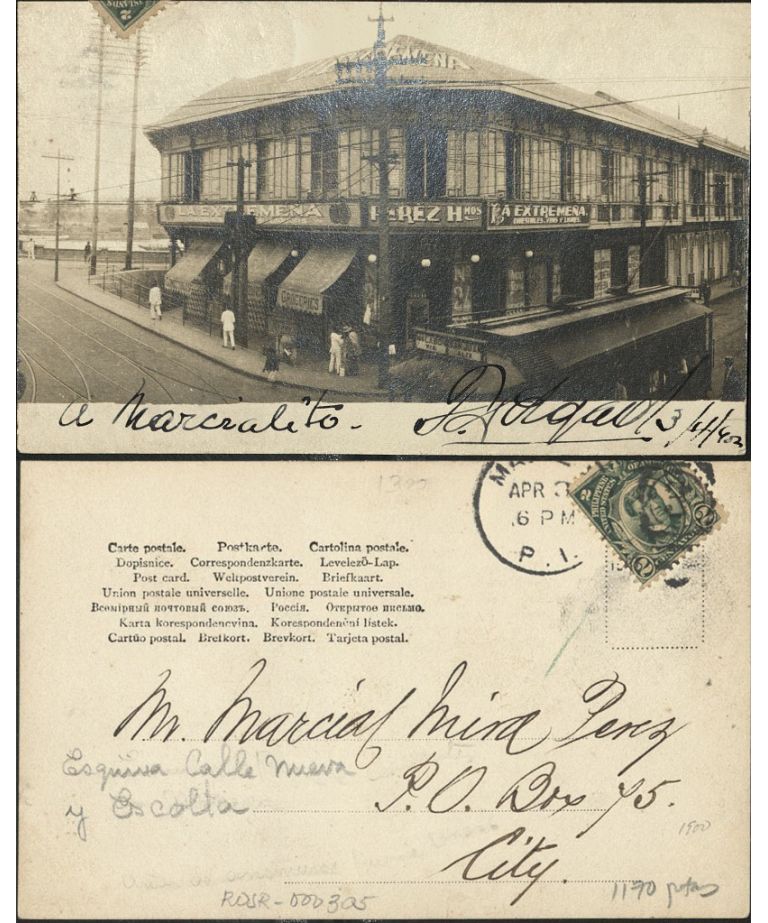 LA EXTREMEÑA
PEREZ HNOS
LA EXTREMEÑA.
GROCERIES
A Marcialito.
3/4/902
APR 3
6 PM
P. I.
2
PHILIPPINE
UNITED STATES
Carte postale. Postkarte. Cartolina postale.
Dopisnice. Correspondenzkarte. Levelező-Lap.
Post card. Weltpostverein. Briefkaart.
Union postale universelle. Unione postale universale.
Всемірный почтовый союзъ. Россія. Открытое письмо.
Karta korespondencyina. Korespondenční lístek.
Cartão postal. Brefkort. Brevkort. Tarjeta postal.
Mr. Marcial Mira Perez
Esquina Calle Nueva
y Escolta
P.O. Box 75.
City.
1900
1170 ptas
RDSR-000305